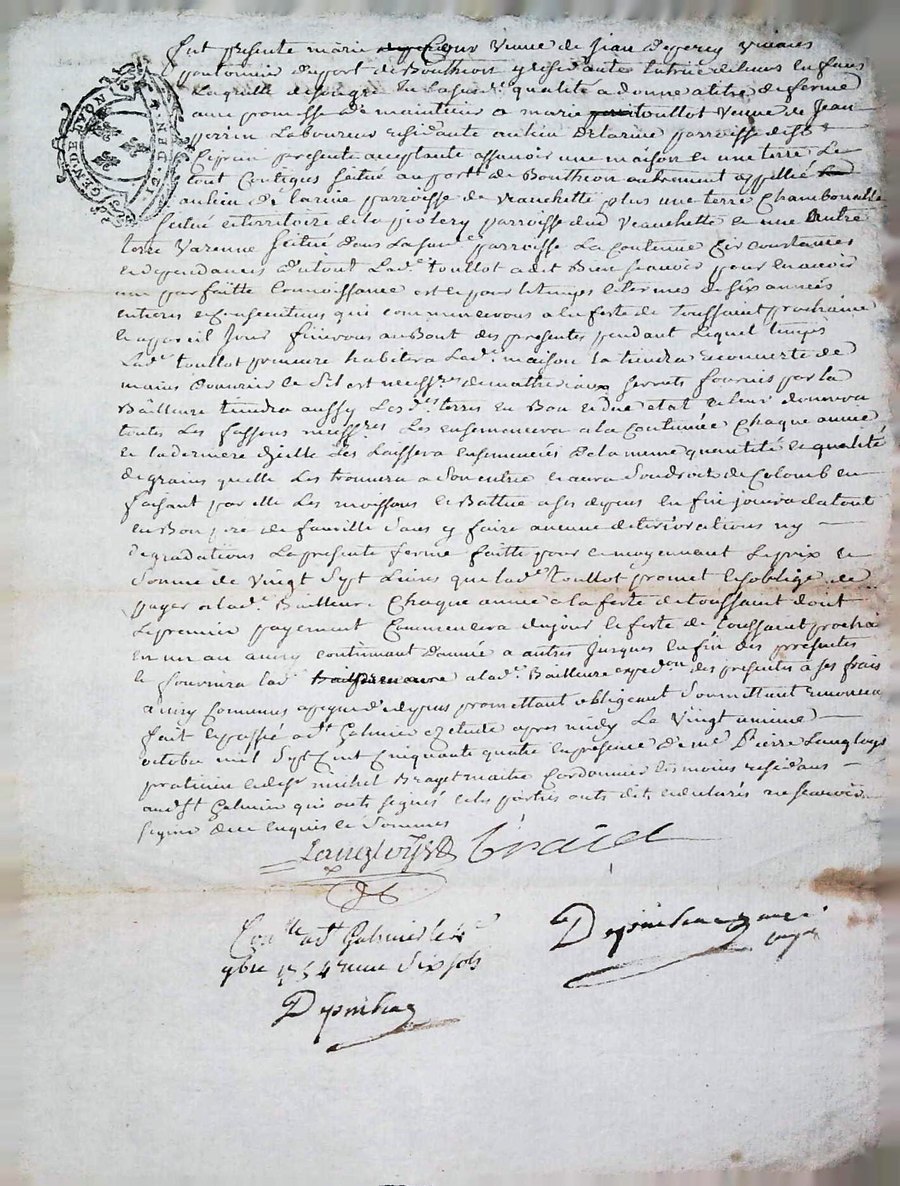 GEN. DE LYON
Fut présente marie veuve de Jean vivant
du port de Bouthéon y résidante tutrice de leurs enfans
laquelle de son gré en lad. qualité a donné a titre de ferme
avec promesse de maintenir a marie toullot veuve de Jean
perrin Laboureur residante au lieu De larine parroisse de st
Ciprien présente acceptante assavoir une maison et une terre Le
tout Contigus scitué au port de Bouthéon autrement appellé
au lieu de larine parroisse de veauchette plus une terre
scitué territoire de la parroisse dud veauchette et une autre
terre varenne scitué dans la parroisse La Contenue Circonstances
et dependances dutout Lade toullot a dit Bien scavoir pour en avoir
une parfaitte Connoissance et ce pour le temps et termes de six années
entieres et consecutives qui commenceront a la feste de toussaint prochaine
et a pareil Jour finiront au Bout des presentes pendant lequel temps
Lade toullot preneure habitera Lade maison la tiendra recouverte de
mains d'ouvrier et s'il est necessres de matheriaux seront fournis par la
Bailleure tiendra aussy Lesdes terres en Bon et due etat et leur donnera
toutes Les fassons necessres Les ensemencera a la Coutumée Chaque année
et la derniere d'jcelle Les Laissera ensemencées De la meme quantité et qualité
de grains quelle Les trouvera a Son entrée et aura Son droit de Colomb en
faisant par elle Les moissons et Battue a ses depens en fin jouira dutout
en Bon pere de famille sans y faire aucune deteriorations ny
Degradations La presente ferme faitte pour et moyennant Le prix et
Somme de vingt Sept Livres que lade toullot promet et s'oblige de
payer a lade Bailleure Chaque année a la feste de toussaint dont
Le premier payement Commencera du jour et feste de toussaint prochai
en un an ainsy continuant d'année a autres jusques en fin des presentes
et fournira lade a lade Bailleure expedon des presentes a ses frais
ainsy Convenus a peyne de depens promettant obligeant Soumettant renoncea
fait et passé a st Galmier etude apres midy Le vingt
octobre mil Sept Cent Cinquante quatre en presence de me Pierre Langlois
praticien et de sr michel maitre Cordonnier temoins residans
aud st Galmier qui onts signés et les parties onts dit et declarés ne scavoir
signer de ce enquis et Sommes
Conlle a st Galmier le 4e
9bre 1754 reçu Six sols